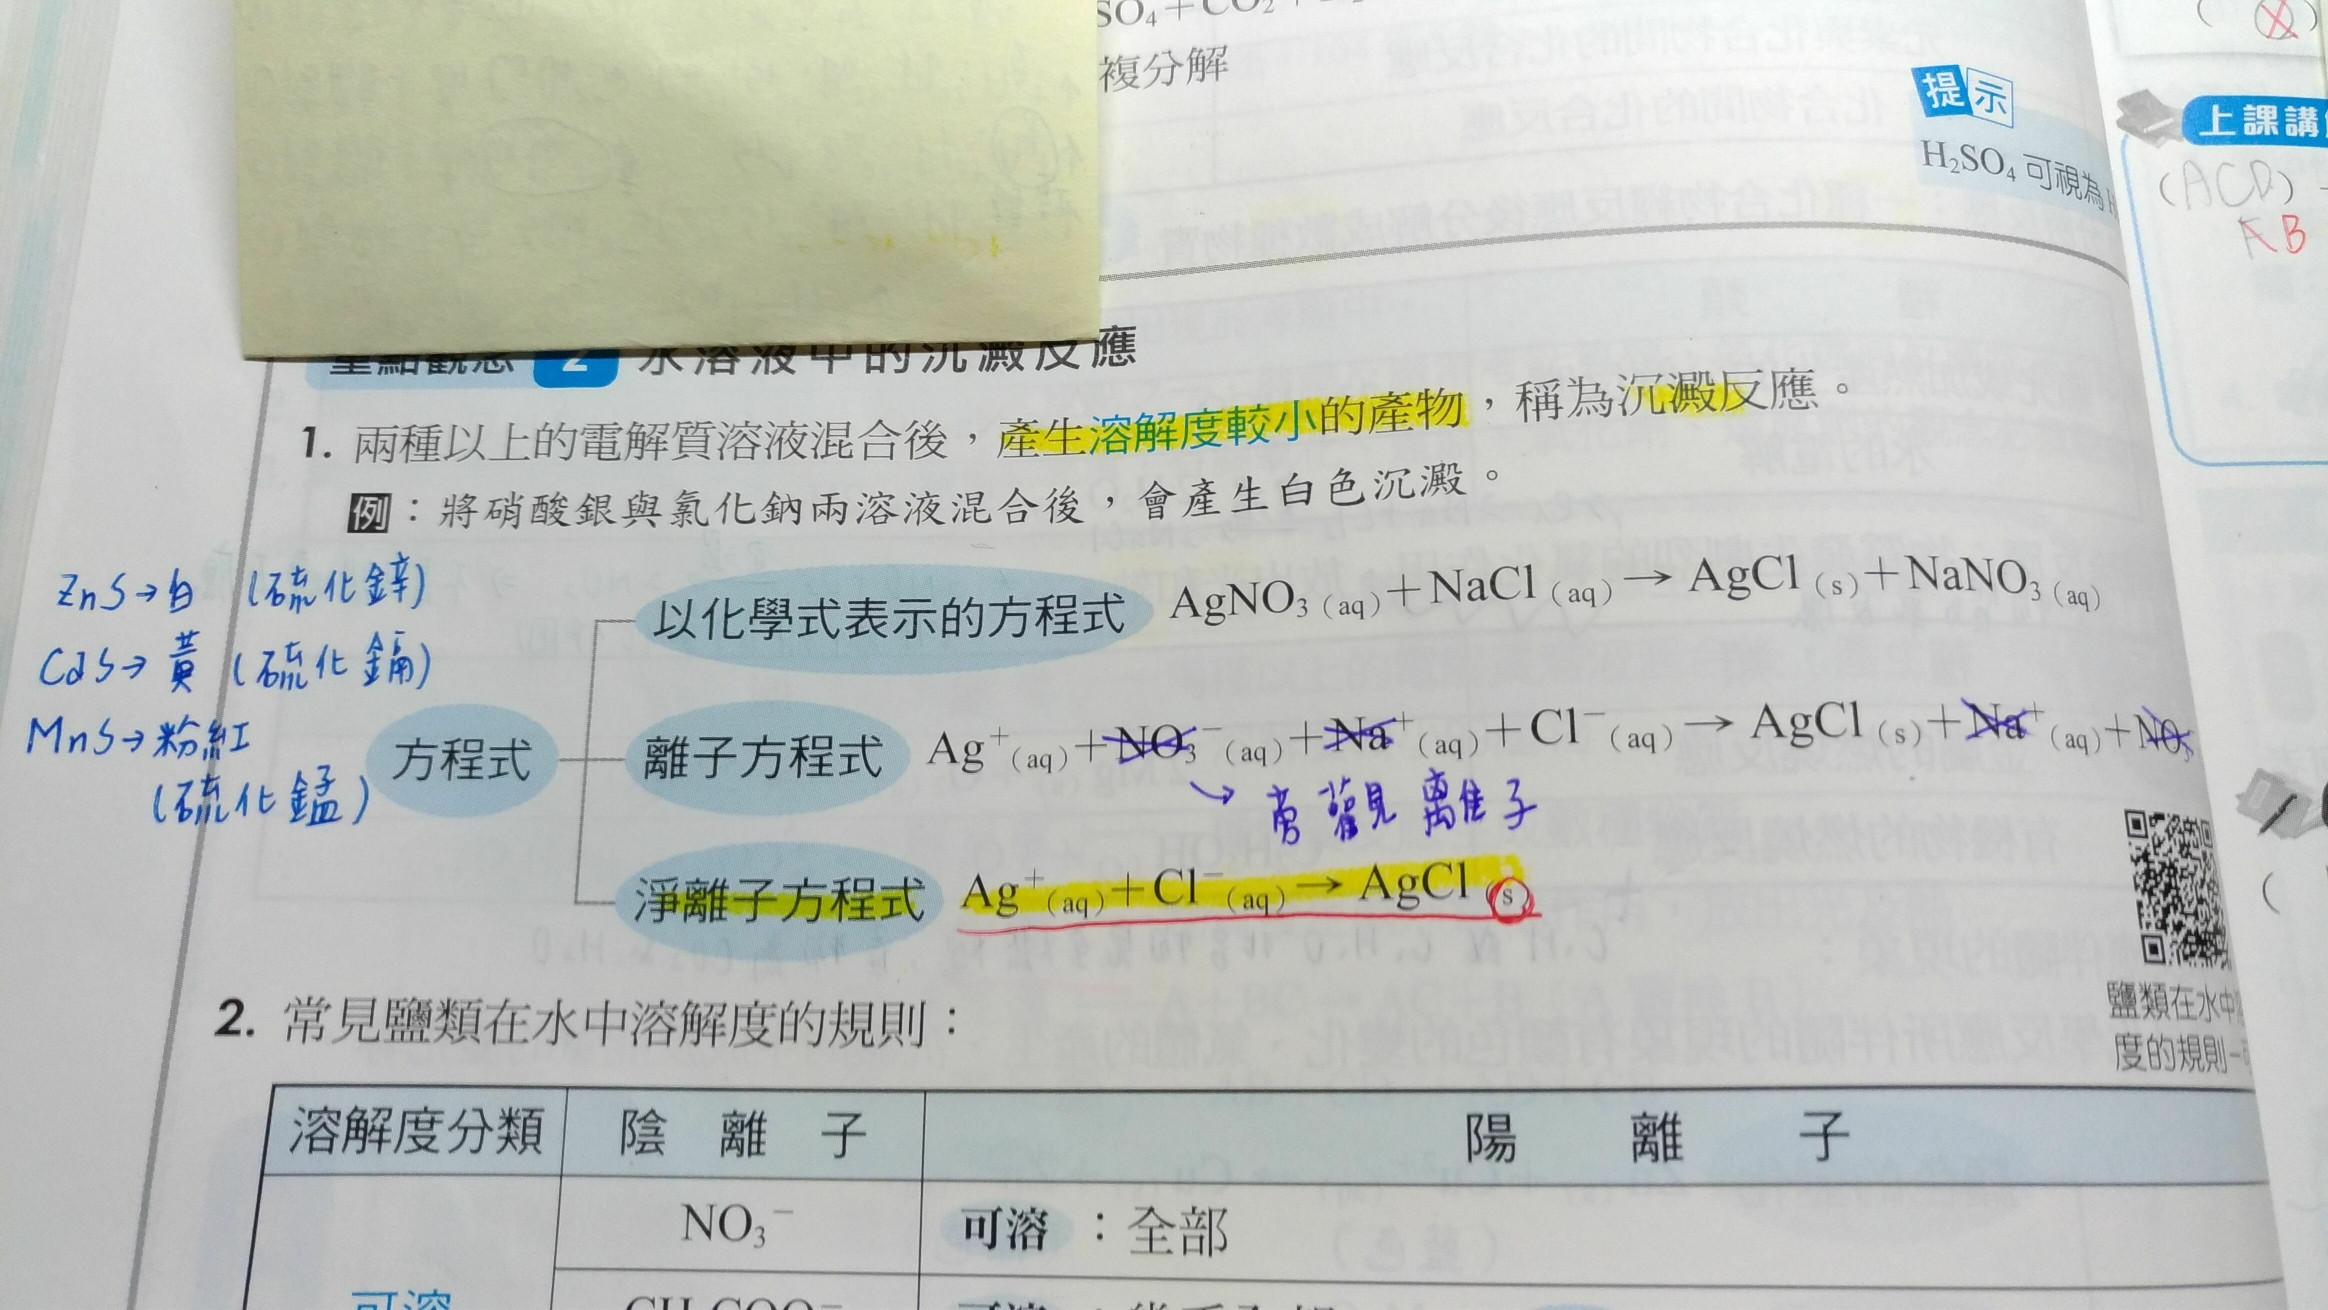 SO₄+CO₂+
複分解
提示
H₂SO₄ 可視為
上課講
(ACD)
AB
重點觀念 2 水溶液中的沉澱反應
1. 兩種以上的電解質溶液混合後，產生溶解度較小的產物，稱為沉澱反應。
例：將硝酸銀與氯化鈉兩溶液混合後，會產生白色沉澱。
ZnS→白 (硫化鋅)
CdS→黃 (硫化鎘)
MnS→粉紅
(硫化錳)
方程式
以化學式表示的方程式 AgNO₃ (aq)+NaCl (aq)→AgCl (s)+NaNO₃ (aq)
離子方程式 Ag⁺(aq)+NO₃⁻(aq)+Na⁺(aq)+Cl⁻(aq)→AgCl (s)+Na⁺(aq)+NO₃
→旁觀離子
淨離子方程式 Ag⁺(aq)+Cl⁻(aq)→AgCl (s)
鹽類在水中
度的規則-
2. 常見鹽類在水中溶解度的規則：
溶解度分類 陰離子 陽離子
NO₃⁻ 可溶：全部
可溶